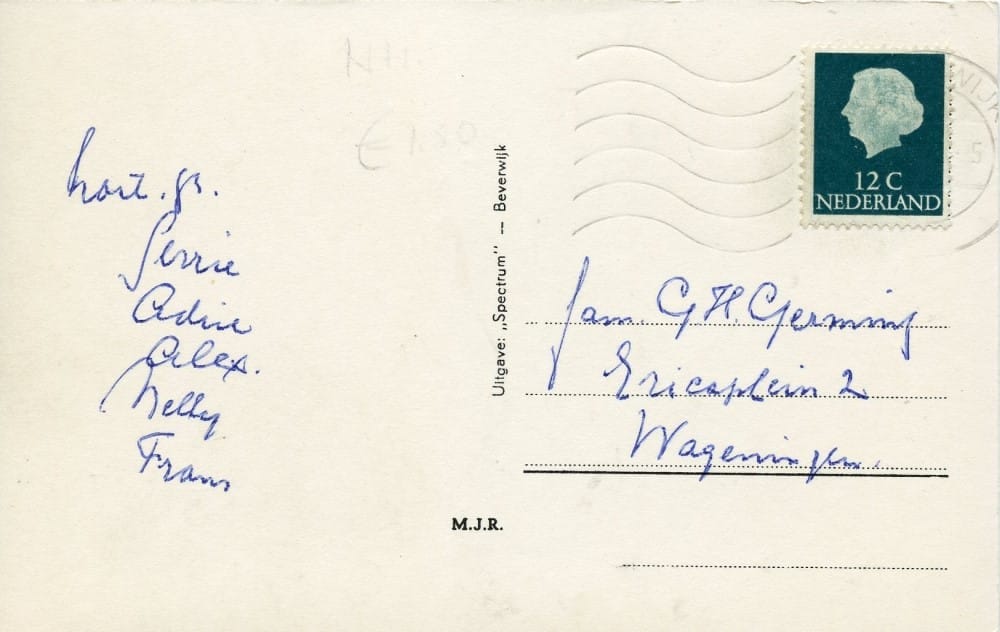 NH.
€ 1.80
hart. gr.
Gerrie
Adine
Alex.
Nelly
Frans
Uitgave: „Spectrum” -- Beverwijk
M.J.R.
WIJK
5
12 C
NEDERLAND
fam. G.H. Germing
Ericaplein 2
Wageningen.